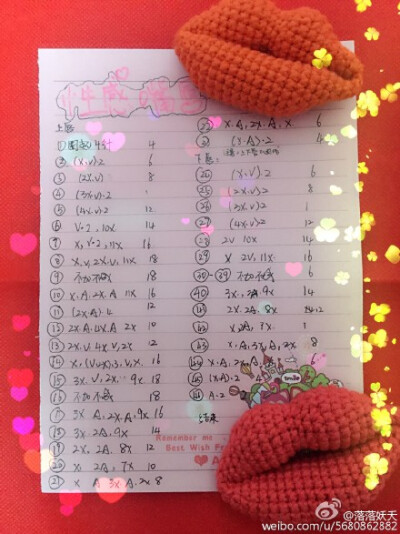 性感嘴唇
上唇
① 圈起4针 4
② (x.v)2 6
③ (2x.v) 8
④ (3x.v).2
⑤ (4x.v)2 12
⑥ v.2..10x 14
⑦ x,v.2,11x 16
⑧ x,v,2x.v,11x 18
⑨ 不加不减x 18
⑩ x.A.2x.A 11x 16
⑪ (2x.A).4 12
⑫ 2x.A.4x.A 2x 10
⑬ 2x.v.4x.v,2x 12
⑭ 16
⑮ 3x.v,2x..9x 18
⑯ 不加不减 18
3x A,2x.A,9x 16
⑱ 3x.2A,9x 14
⑲ 2x,2A,8x 12
⑳ x,2A,7x 10
㉑ x A 3x A.2x 8
㉒ x.A,2x.A,x 6
(x.A).2 4
下唇:
(x.v)2 6
㉕ (2x.v)2 8
㉖ (3x.v)2
㉗ (4x.v)2 12
㉘ 2v 10x 14
㉙ x 2v,11x 16
㉚-㊴ 不加不减 16
㊵ 14
2x.2A.8x 12
x 2A,3x.
㊸ x,A,3x,A,2x 8
x.A,2x,A, 6
(x.A).2 4
A.2
结束
smile
Remember me
Best Wish
@落落妖夭
weibo.com/u/5680862882